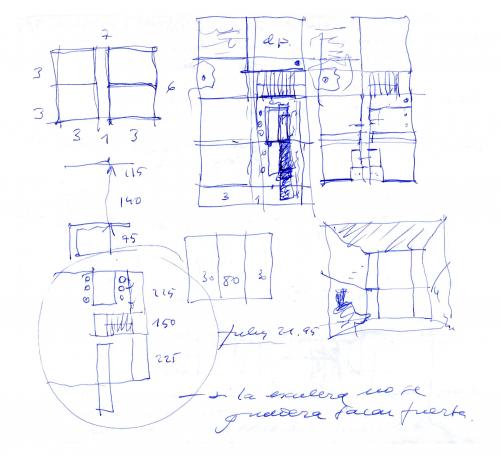 7
3
6
3
3 1 3
d.p.
3 1
115
140
95
225
150
225
30 80 30
July 21. 95
la escalera no se